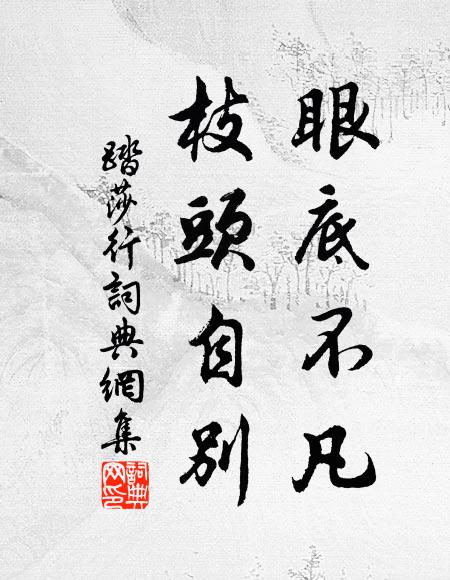 眼底不凡
枝頭自別
踏莎行詞典網集
詞典網印